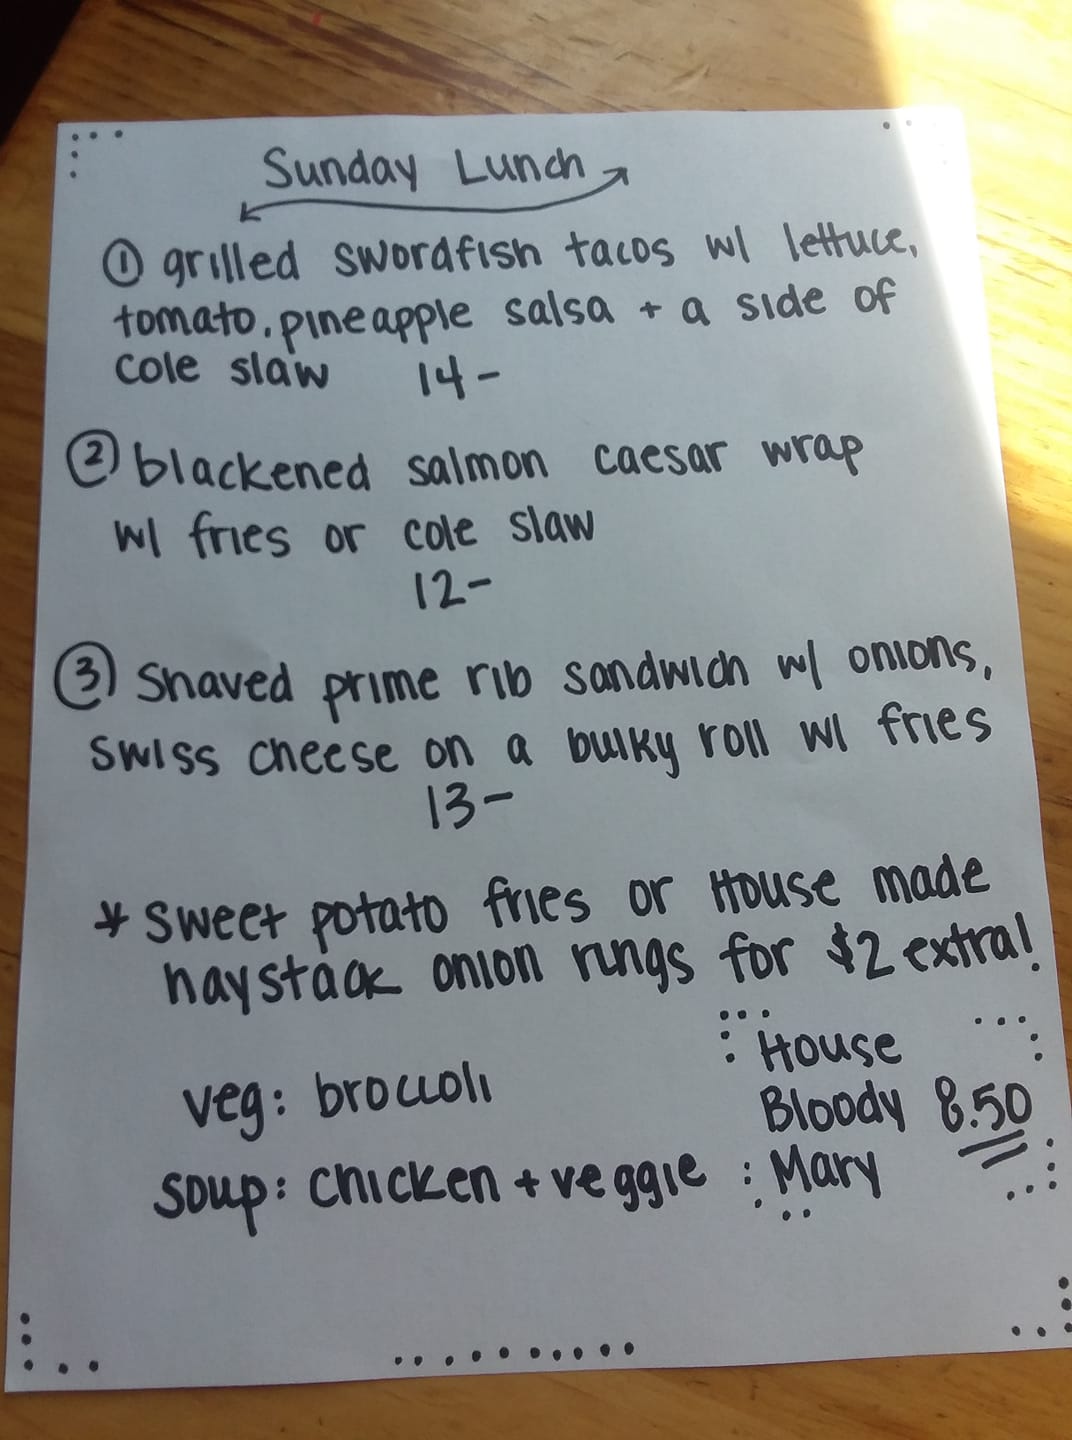 Sunday Lunch
① grilled swordfish tacos w/ lettuce,
tomato, pineapple salsa + a side of
cole slaw 14-
② blackened salmon caesar wrap
w/ fries or cole slaw
12-
③ Shaved prime rib sandwich w/ onions,
swiss cheese on a bulky roll w/ fries
13-
* Sweet potato fries or House made
haystack onion rings for $2 extra!
veg: broccoli
soup: chicken + veggie
House
Bloody 8.50
Mary